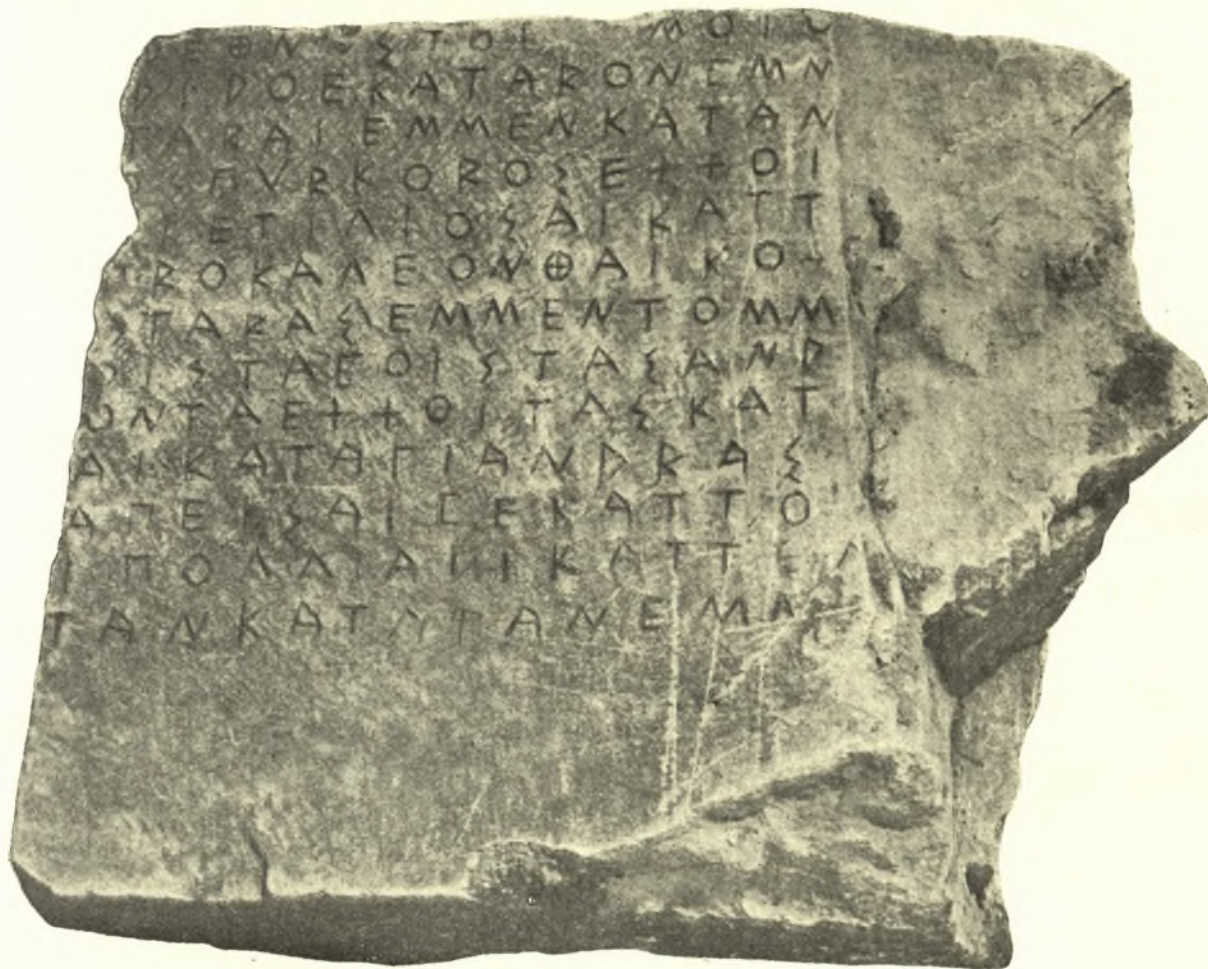 ΕΘΝ ΣΤΟΙ ΜΟΙ
ΔΙΔΟΕΚΑΤΑΡΟΝΕΜΝ
ΑΡΑΙΕΜΜΕΝΚΑΤΑΝ
ΠΥΡΚΟΡΟΣΕΧΧΟΙ
ΙΕΤΙΛΙΟΣΑΙΚΑΤΤ
ΡΟΚΑΛΕΟΝΘΑΙΚΟ
ΣΓΑΡΑΣΛΕΜΜΕΝΤΟΜΜ
ΟΙΣΤΑΕΟΙΣΤΑΣΑΝΔ
ΟΝΤΑΕΧΧΟΙΤΑΣΚΑΤ
ΑΙΚΑΤΑΓΙΑΝΔΡΑΣ
ΑΠΕΙΣΑΙΓΕΚΑΤΤΟ
ΙΠΟΛΛΙΑΝΙΚΑΤΤΕΛ
ΤΑΝΚΑΤ ΓΑΝΕΜ